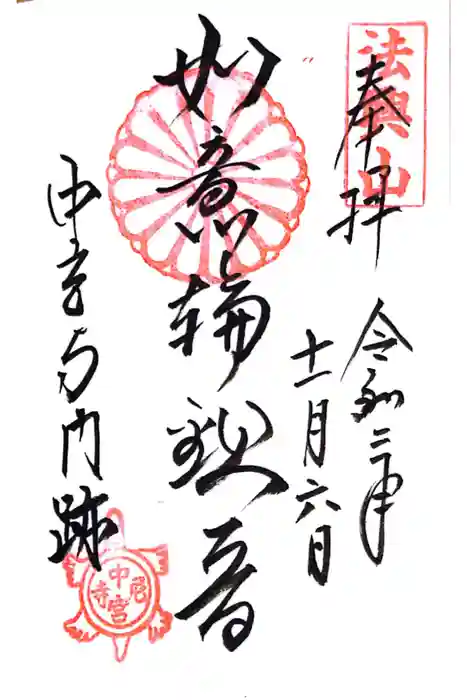 法興山
奉拝
令和二年
十一月六日
如意輪観音
中宮寺門跡
中宮尼寺